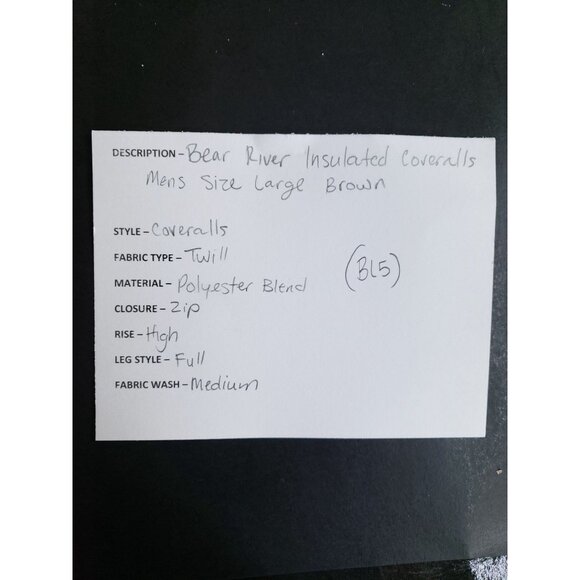 DESCRIPTION - Bear River Insulated Coveralls
Mens Size Large Brown
STYLE - Coveralls
FABRIC TYPE - Twill
MATERIAL - Polyester Blend
(BL5)
CLOSURE - Zip
RISE - High
LEG STYLE - Full
FABRIC WASH - Medium